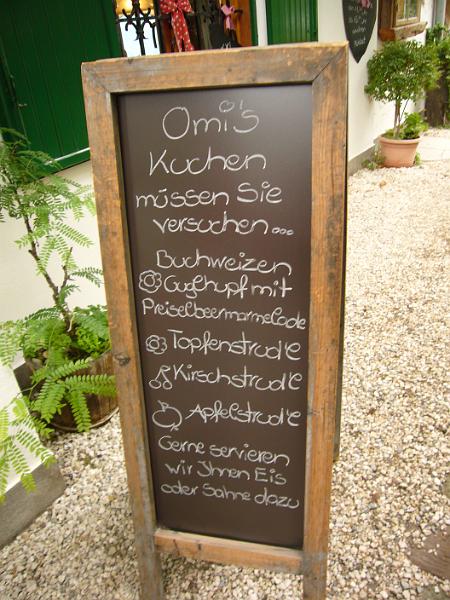 Omi's
Kuchen
müssen Sie
versuchen...
Buchweizen
Guglhupf mit
Preiselbeermarmelade
Topfenstrud'l
Kirschstrud'l
Apfelstrud'l
Gerne servieren
wir Ihnen Eis
oder Sahne dazu